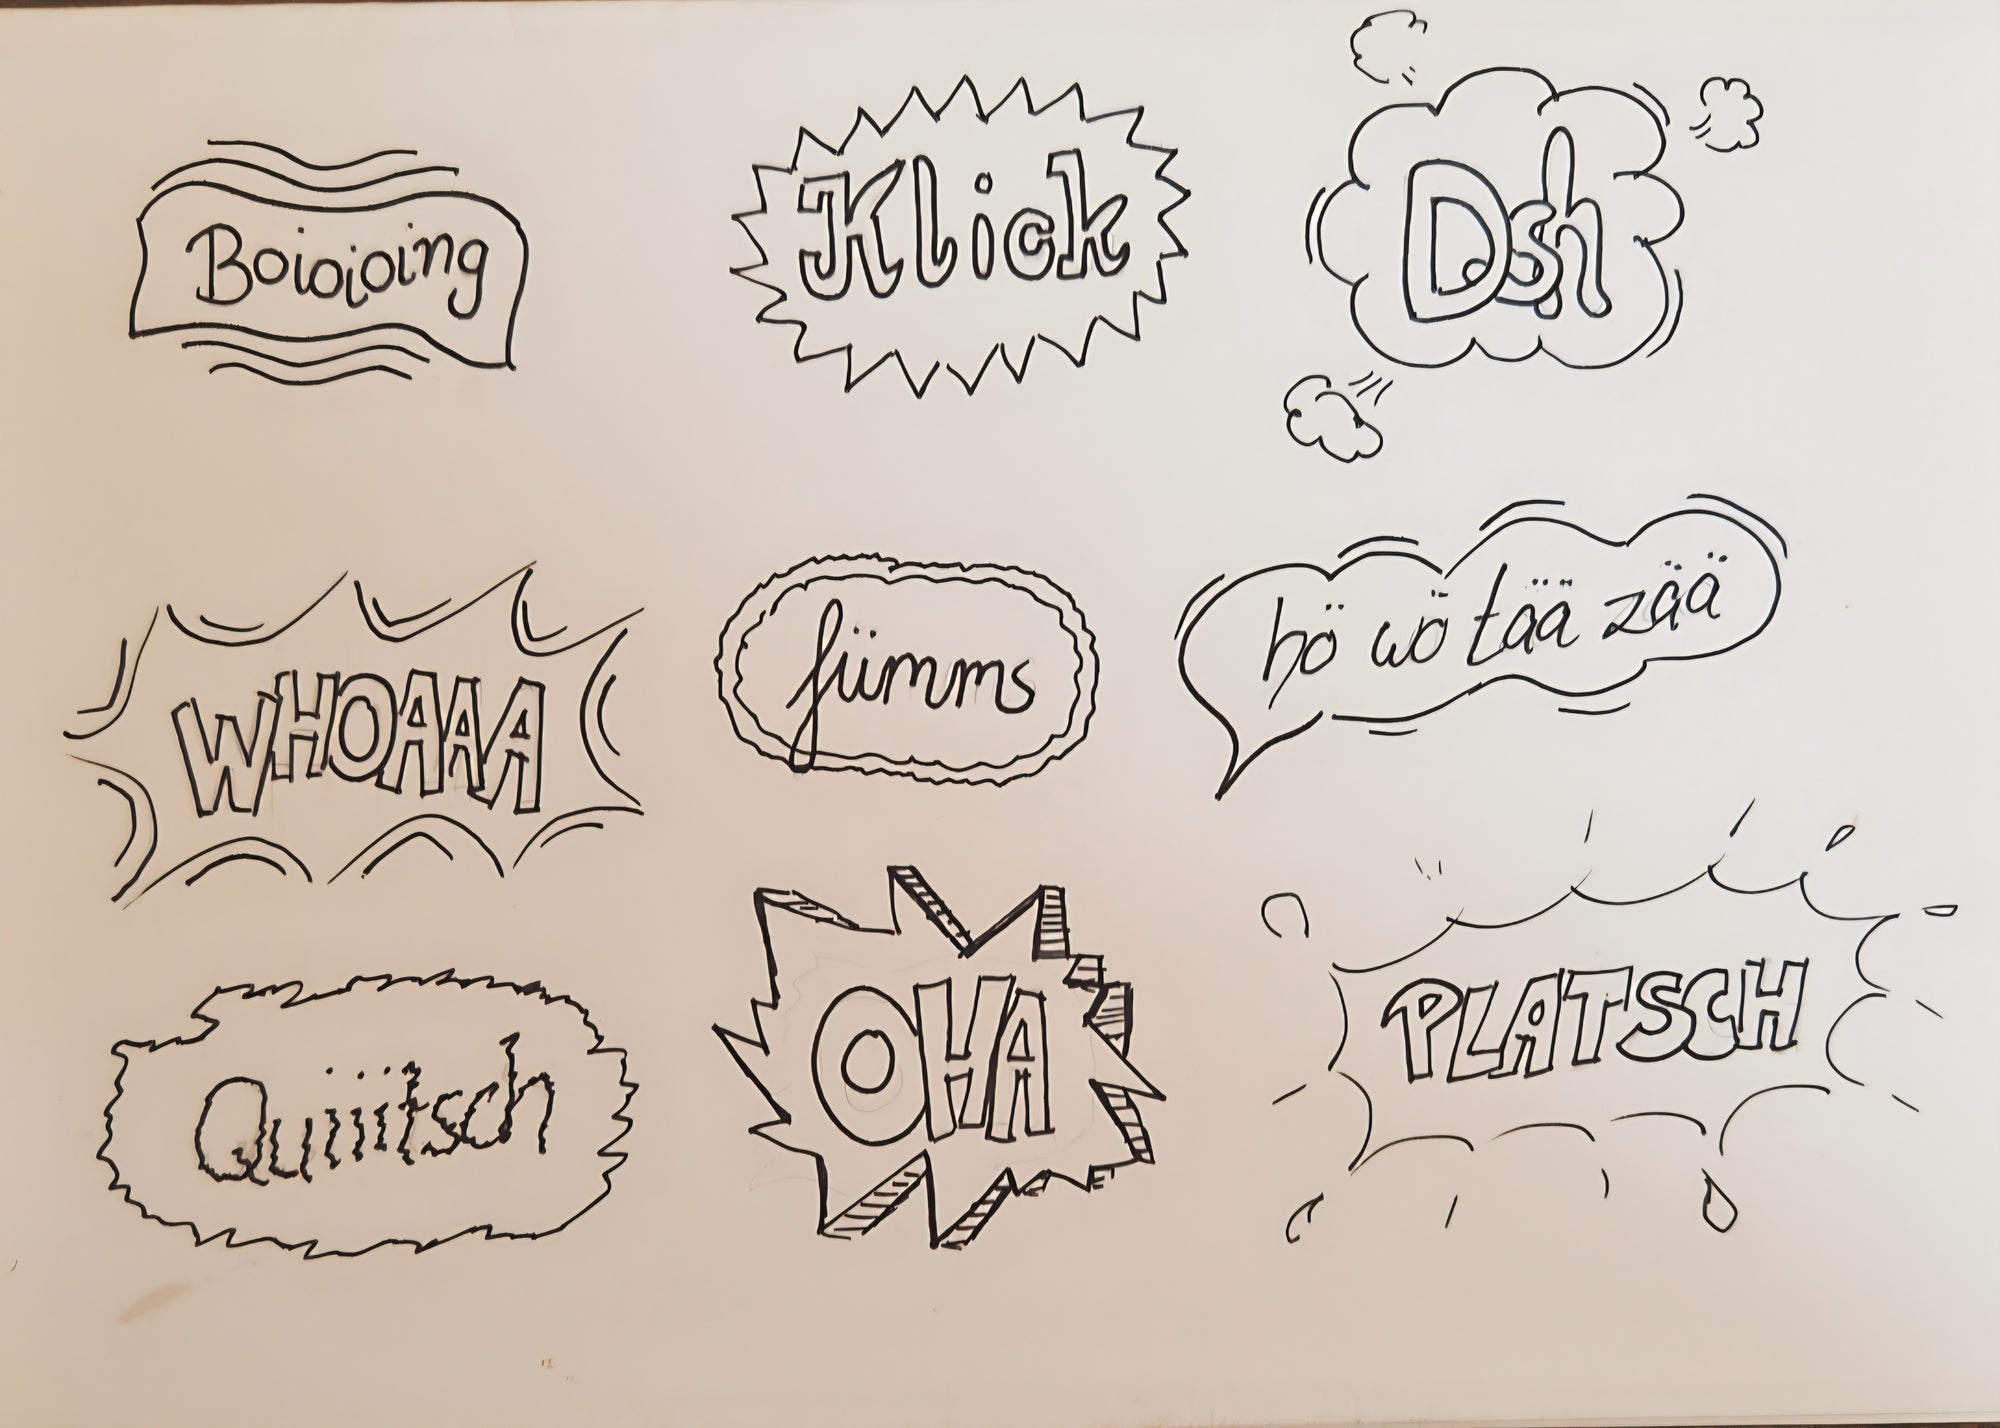 Boioioing
Klick
Dsh
WHOAAA
fümms
hö wö tää zää
Quiiitsch
OHA
PLATSCH